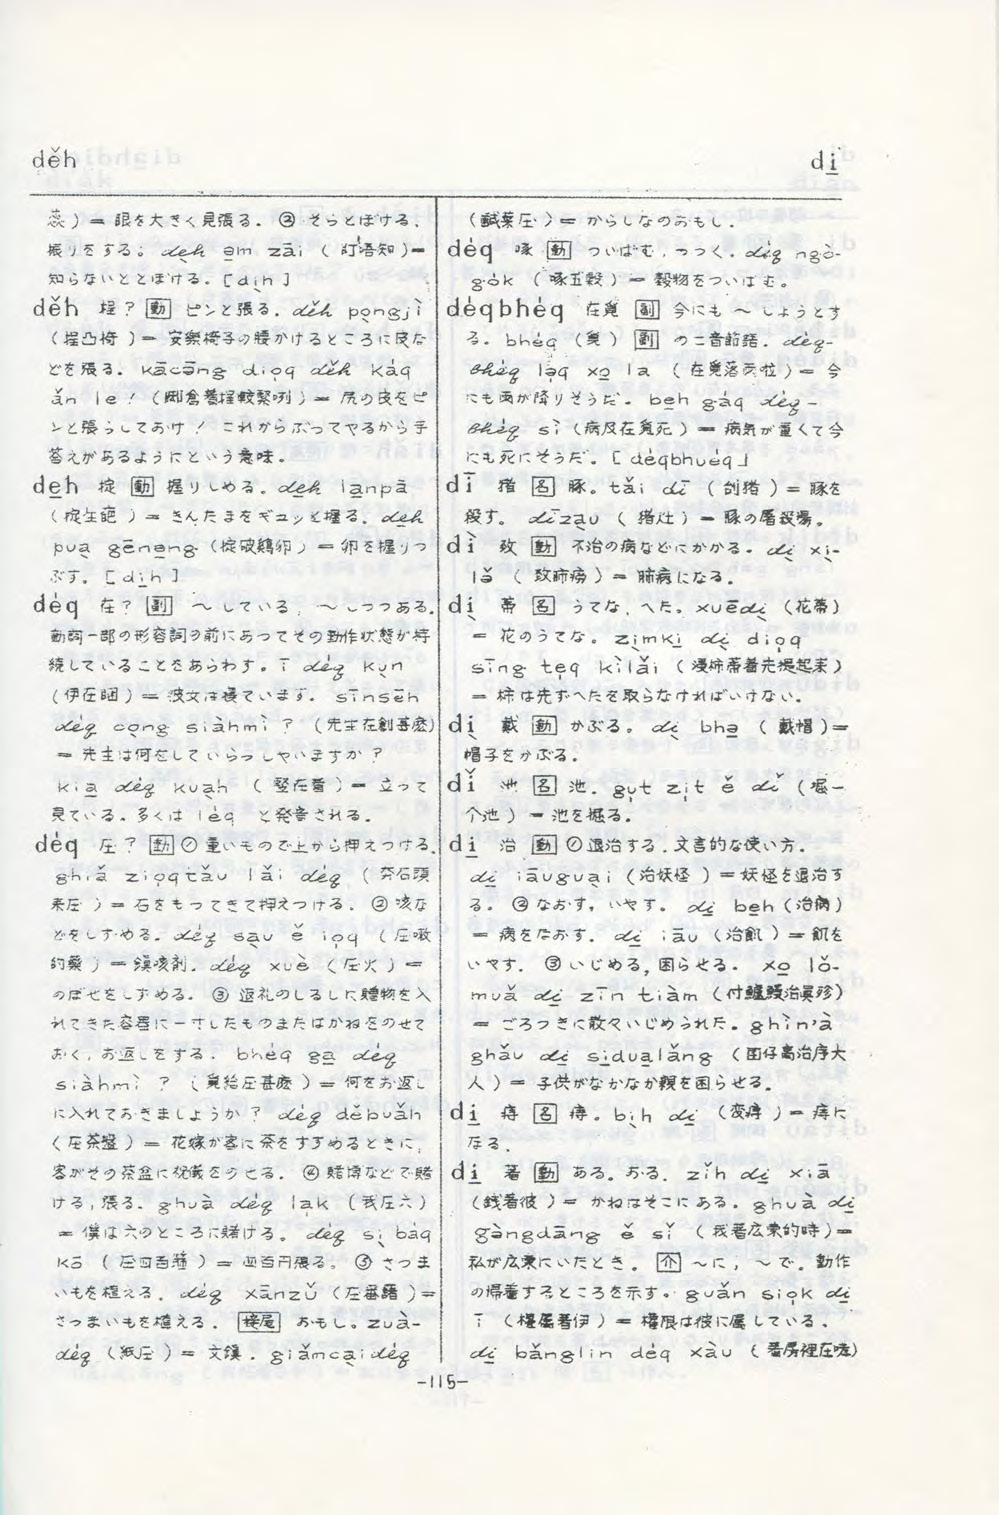 dě̌h
di̠
蕊)＝眼を大きく見張る. ② そらとぼける,
振りをする。de̠h e̠m zāi (盯唔知)＝
知らないととぼける. [di̠h]
děh 埕? 動 ピンと張る. děh po̠ngjì
(埕凸椅)＝安樂椅子の腰かけるところに皮な
どを張る. Kācāng dioq děh kàq
ǎn le! (尻倉著埕較緊咧)＝尻の皮をピ
ンと張らしておけ! これからぶってやるから手
答えがあるようにという意味.
de̠h 掟 動 握りしめる. de̠h la̠npā
(掟生)＝きんたまをギュッと握る. de̠h
pua̠ gēne̠ng (掟破鶏卵)＝卵を握りつ
ぶす. [di̠h]
déq 在? 副 〜している, 〜しつつある.
動詞一部の形容詞の前にあってその動作状態が持
続していることをあらわす. ī déq ku̠n
(伊在睏)＝彼女は寝ています. sīnsēh
déq co̠ng siàhmì? (先生在創甚麼)
＝先生は何をしていらっしゃいますか?
kia̠ déq kua̠h (竪在看)＝立って
見ている. 多くは léq と発音される.
déq 圧? 動 ① 重いもので上から押えつける.
ghiǎ zioqtǎu lǎi déq (夯石頭
来圧)＝石をもってきて押えつける. ② 咳な
どをしずめる. déq sa̠u ě ioq (圧嗽
的藥)＝鎮咳剤. déq xuè (圧火)＝
のぼせをしずめる. ③ 返礼のしるしに贈物を入
れてきた容器に一寸したものまたはかねをのせて
おく, お返しをする. bhéq ga̠ déq
siàhmì? (覓給圧甚麼)＝何をお返し
に入れておきましょうか? déq débuǎh
(圧茶盤)＝花嫁が客に茶をすすめるときに,
客がその茶盆に祝儀をのせる. ④ 賭博などで賭
ける, 張る. ghuà déq lak (我圧六)
＝僕は六のところに賭ける. déq si̠ báq
kō (圧四百箍)＝四百円張る. ⑤ さつま
いもを植える. déq xānzǔ (圧番藷)＝
さつまいもを植える. 接尾 おもし. zuà-
déq (紙圧)＝文鎮. giǎmca̠idéq
(鹹菜圧)＝からしなのおもし.
déq 啄 動 ついばむ, つつく. déq ngò-
gók (啄五穀)＝穀物をついばむ.
déqbhéq 在覓 副 今にも〜しようとす
る. bhéq (覓) 副 の二音節語. déq-
bhéq la̠q xo̠ la (在覓落雨啦)＝今
にも雨が降りそうだ. be̠h gáq déq-
bhéq sì (病及在覓死)＝病気が重くて今
にも死にそうだ. [déqbhuéq]
dī 猪 名 豚. tǎi dī (刣猪)＝豚を
殺す. dīza̠u (猪灶)＝豚の屠殺場.
dì 致 動 不治の病などにかかる. dì xi-
lǒ (致肺癆)＝肺病になる.
di̠ 蒂 名 うてな, へた. xuēdi̠ (花蒂)
＝花のうてな. zi̠mki̠ di̠ dioq
sīng te̠q kìlǎi (浸柿蒂着先提起来)
＝柿は先ずへたを取らなければいけない.
di̠ 戴 動 かぶる. di̠ bhə̠ (戴帽)＝
帽子をかぶる.
dǐ 池 名 池. gu̠t zit ě dǐ (堀一
个池)＝池を掘る.
di̠ 治 動 ① 退治する. 文言的な使い方.
di̠ iāugua̠i (治妖怪)＝妖怪を退治す
る. ② なおす, いやす. di̠ be̠h (治病)
＝病をなおす. di̠ iāu (治飢)＝飢を
いやす. ③ いじめる, 困らせる. xo̠ lǒ-
muǎ di̠ zīn tiàm (付鱸鰻治真殄)
＝ごろつきに散々いじめられた. ghìn'à
ghǎu di̠ si̠dua̠lǎng (囝仔高治序大
人)＝子供がなかなか親を困らせる.
di̠ 痔 名 痔. bi̠h di̠ (変痔)＝痔に
なる.
di̠ 著 動 ある. おる. zǐh di̠ xiā
(銭着彼)＝かねはそこにある. ghuà di̠
gàngdāng ě sǐ (我著広東的時)＝
私が広東にいたとき. 介 〜に, 〜で. 動作
の帰着するところを示す. guǎn siok di̠
ī (権属著伊)＝権限は彼に属している.
di̠ bǎnglin déq xàu (著房裡在哮)
-115-